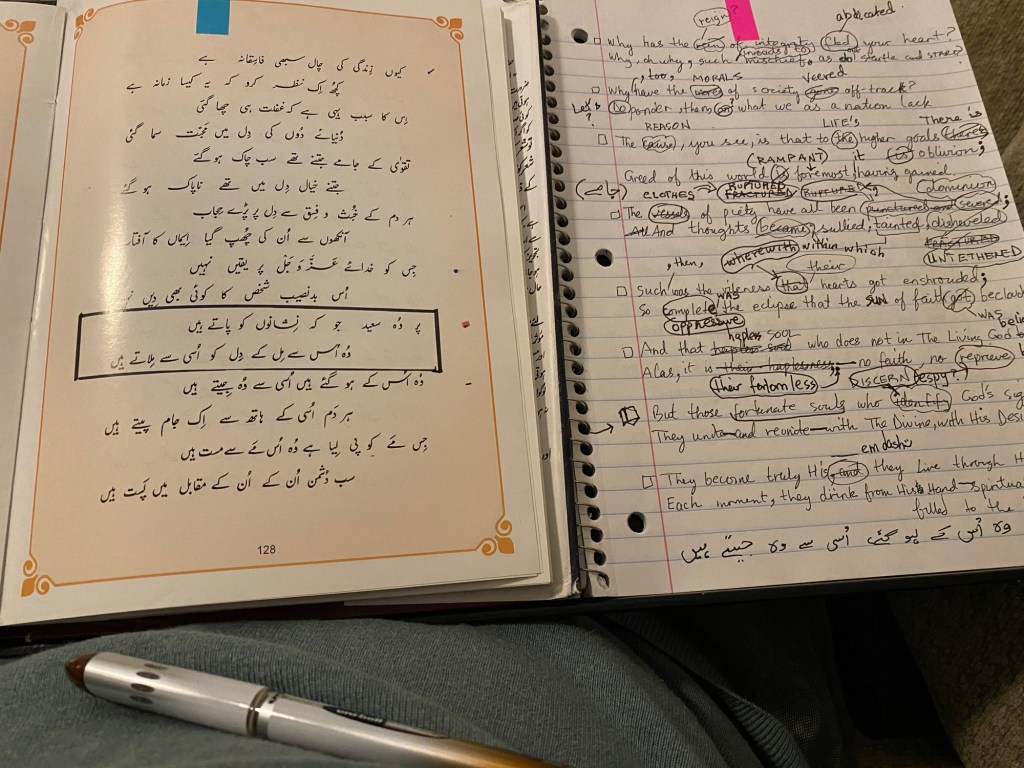 کیوں زِندگی کی چال سبھی فاسِقانہ ہے
کچھ اِک نظر کرو کہ یہ کیسا زمانہ ہے
اِس کا سبب یہی ہے کہ غفلت ہی چھا گئی
دُنیائے دُوں کی دِل میں محبّت سما گئی
تقویٰ کے جامے جتنے تھے سب چاک ہو گئے
جتنے خیال دِل میں تھے ناپاک ہو گئے
ہر دم کے خُبث و فِسق سے دِل پر پڑے حجاب
آنکھوں سے اُن کی چُھپ گیا اِیماں کا آفتاب
جِس کو خدائے عزّ و جَلّ پر یقیں نہیں
اُس بدنصیب شخص کا کوئی بھی دِیں نہیں
پر وُہ سعید جو کہ نِشانوں کو پاتے ہیں
وُہ اُس سے مِل کے دِل کو اُسی سے مِلاتے ہیں
وُہ اُس کے ہو گئے ہیں اُسی سے وُہ جِیتے ہیں
ہر دَم اُسی کے ہاتھ سے اِک جام پیتے ہیں
جِس مَے کو پی لِیا ہے وُہ اُس مَے سے مست ہیں
سب دُشمن اُن کے اُن کے مقابل میں پَست ہیں
128
reign?
abdicated
Why has the of integrity fled your heart?
inroads to
Why, oh why, such mischief, as to startle and start?
, too, MORALS veered
Why have the of society off-track?
Let's
ponder then on what we as a nation lack
?
REASON LIFE'S There is
The cause, you see, is that to the higher goals there
(RAMPANT) it is oblivion;
Greed of this world is foremost, having gained
(جامے) CLOTHES RUPTURED FRACTURED RUPTURED dominion
The vessels of piety have all been punctured and severed;
All And thoughts became sullied, tainted, disheveled
UNTETHERED
wherewith within which
, then, their
Such was the vileness that hearts got enshrouded;
WAS
So complete the eclipse that the SUN of faith got
oppressive WAS
hapless soul
And that hapless soul who does not in The Living God
Alas, it is their haplessness; no faith, no reprieve
their forlornless; DISCERN espy?
But those fortunate souls who identify God's
They unite and reunite with The Divine, with His
em dash
They become truly His and they live through
Each moment, they drink from His Hand—
filled to the
وہ اُس کے ہو گئے اُسی سے وہ جیتے ہیں